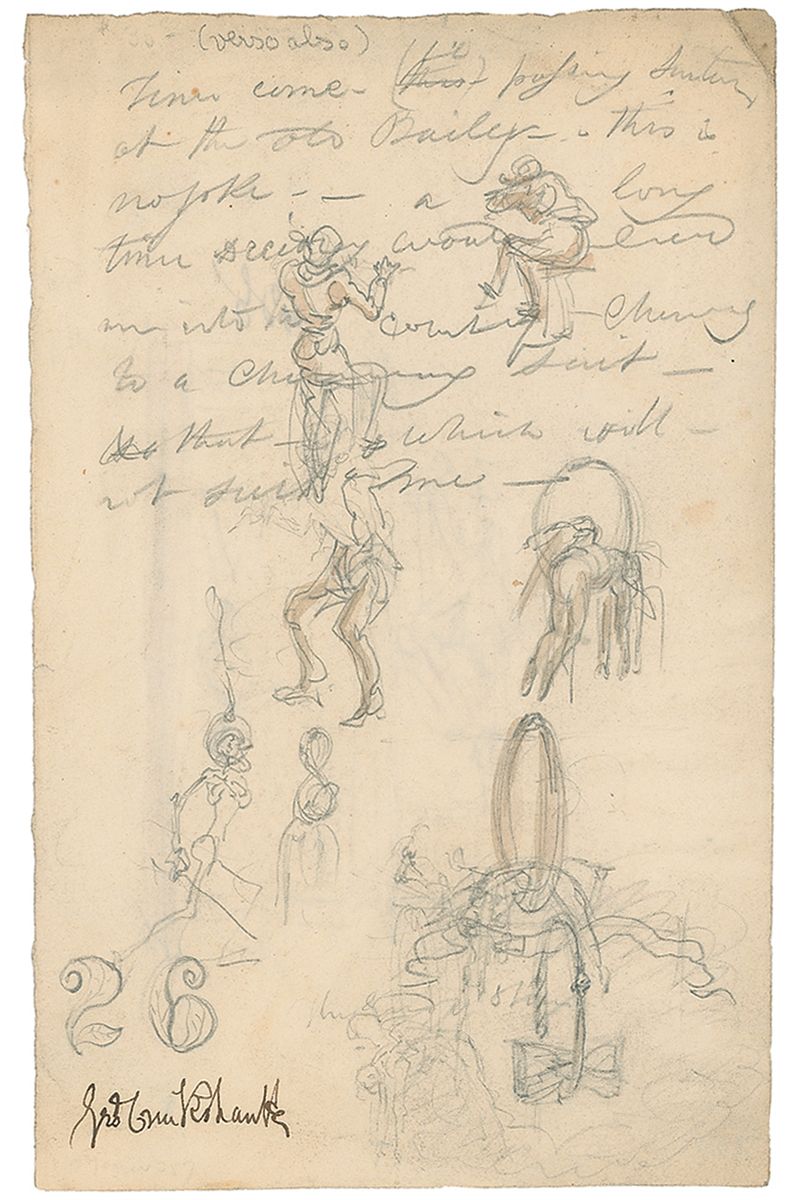 (verso also)
Time come (this) passing Sentence
at the Old Bailey - this is
no joke - - a long
time seeing would even
me into a court - Chancery
to a Chancery Suit -
that - which will -
not suit me -
26
Geo Cruikshank